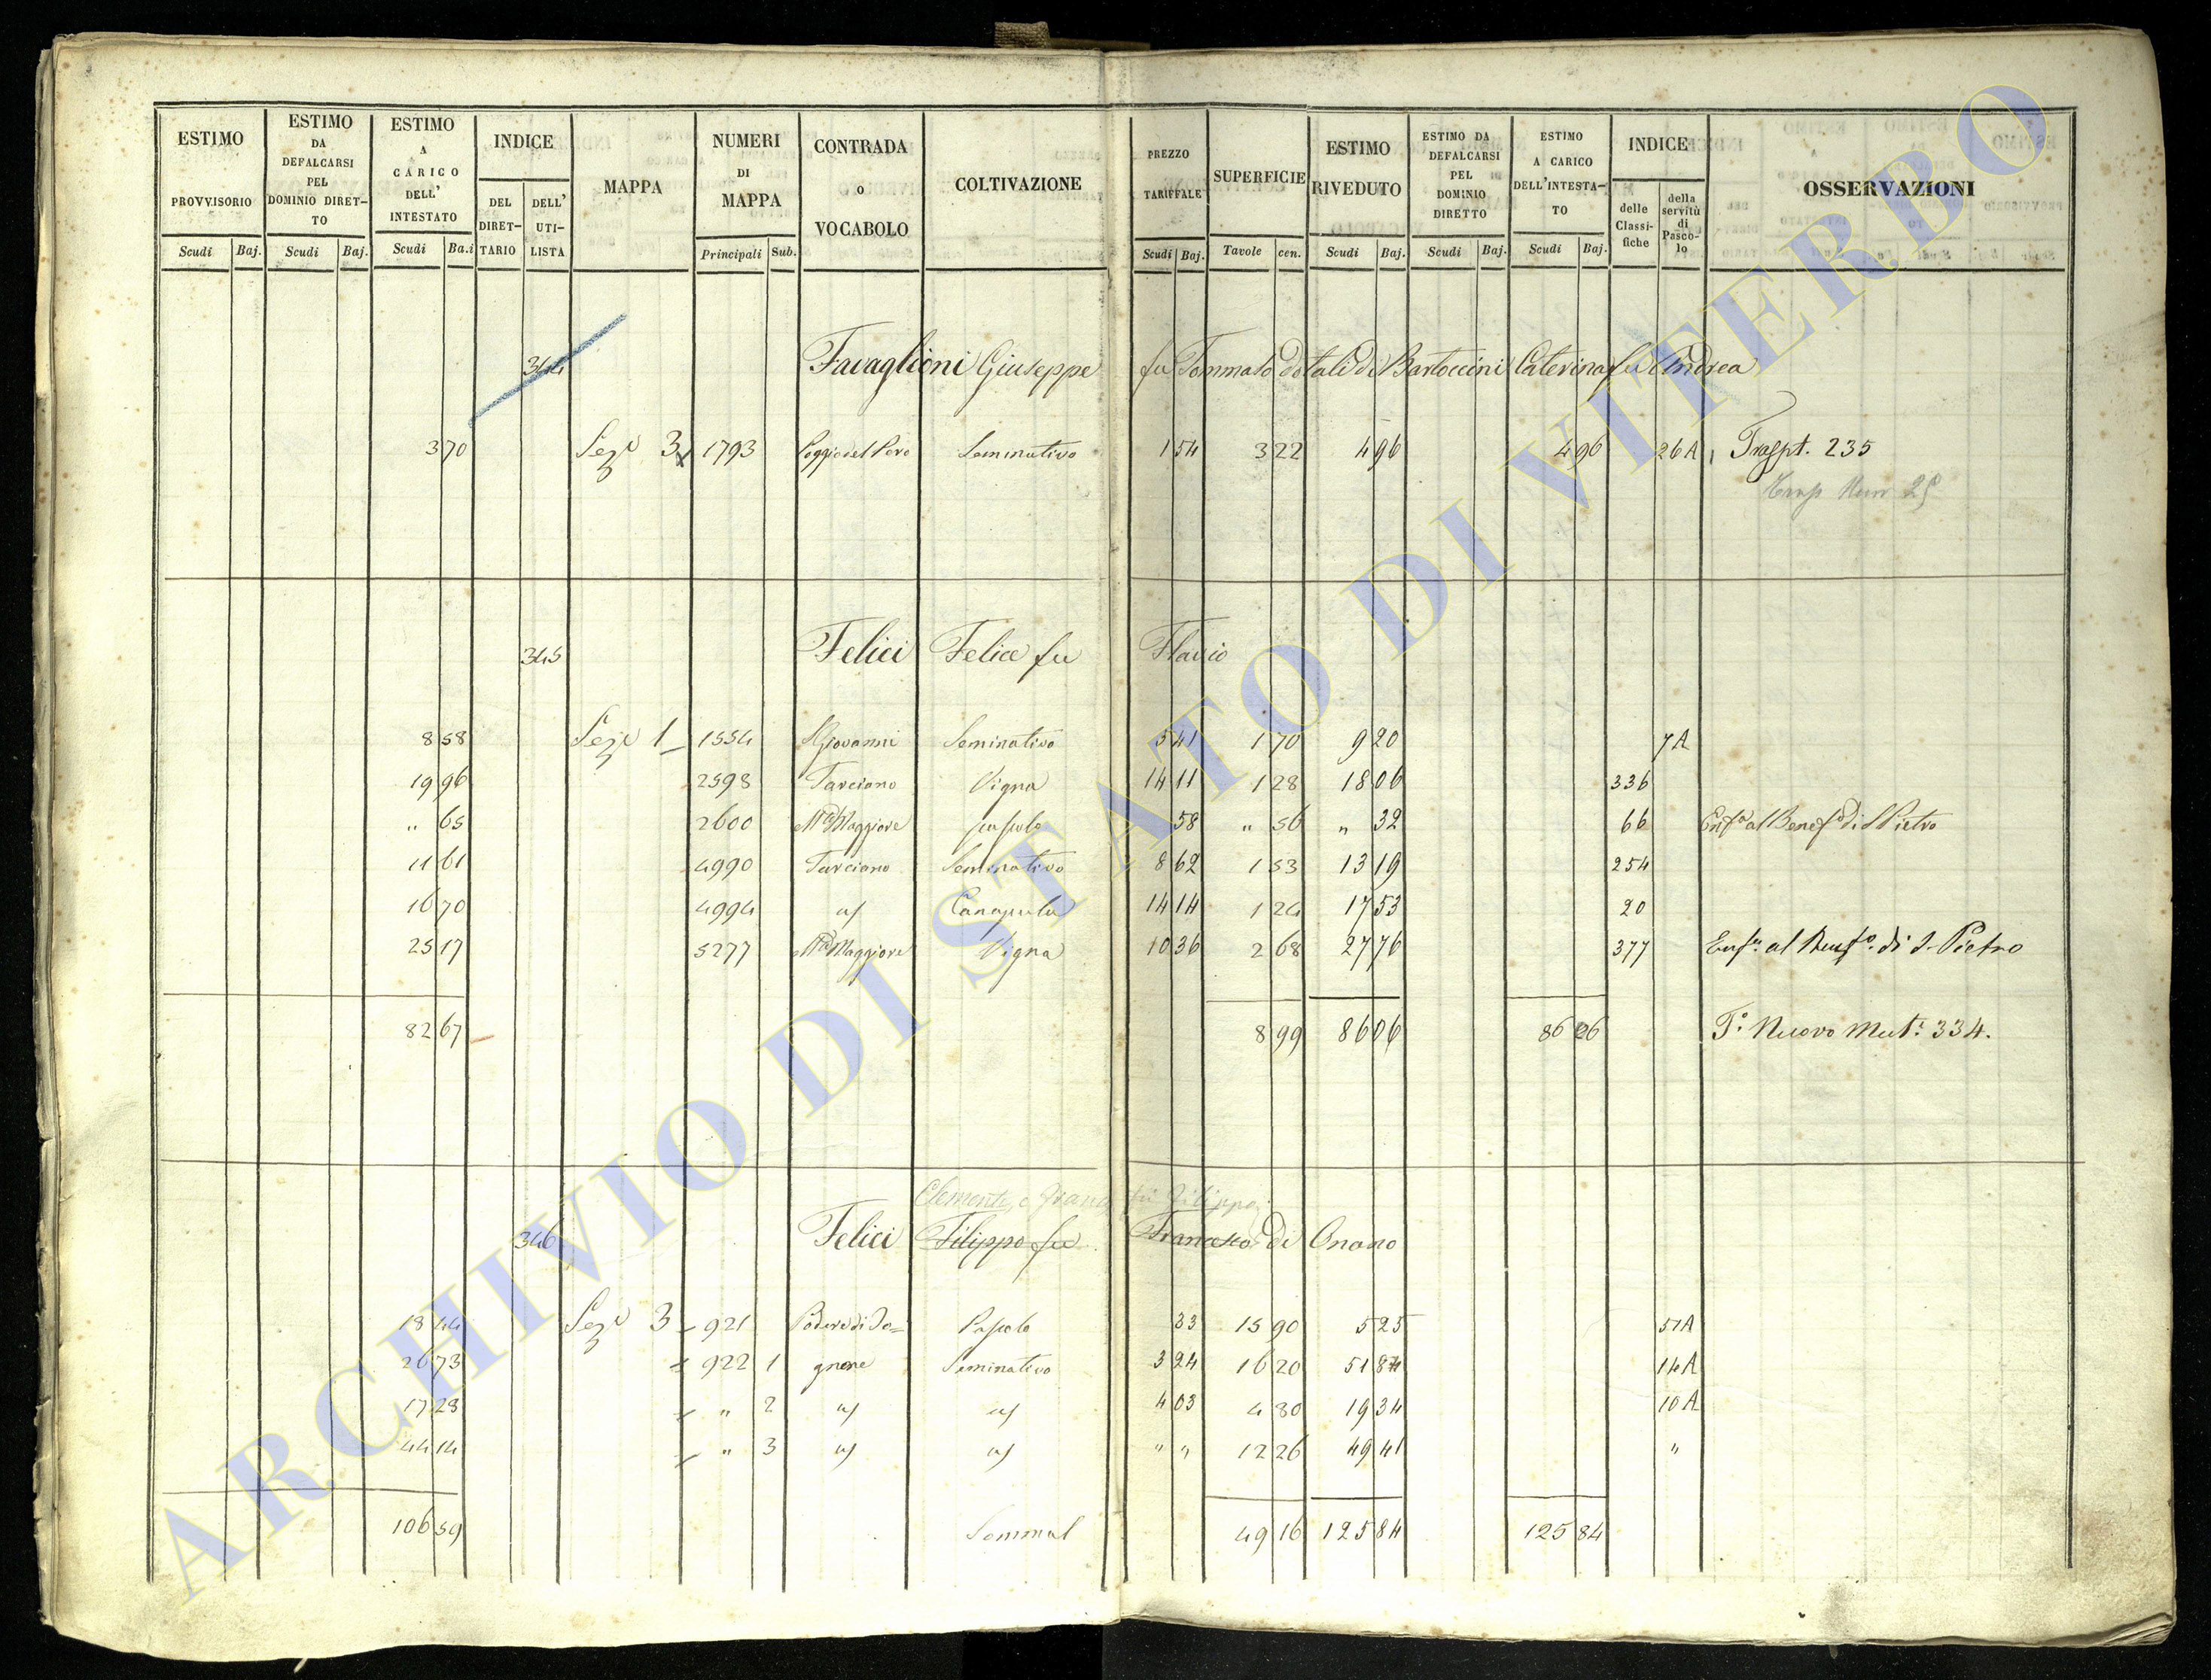 ESTIMO PROVVISORIO | ESTIMO DA DEFALCARSI PEL DOMINIO DIRET-TO | ESTIMO A CARICO DELL' INTESTATO | INDICE | MAPPA | NUMERI DI MAPPA | CONTRADA o VOCABOLO | COLTIVAZIONE | PREZZO TARIFFALE | SUPERFICIE | ESTIMO RIVEDUTO | ESTIMO DA DEFALCARSI PEL DOMINIO DIRETTO | ESTIMO A CARICO DELL'INTESTA-TO | INDICE | OSSERVAZIONI
Scudi | Baj. | Scudi | Baj. | Scudi | Ba.i | DEL DIRET-TARIO | DELL' UTI-LISTA | Principali | Sub. | Scudi | Baj. | Tavole | cen. | Scudi | Baj. | Scudi | Baj. | Scudi | Baj. | delle Classi-fiche | della servitù di Pasco-lo
344 Favaglioni Giuseppe fu Tommaso dotali di Bartoccini Caterina fu Andrea
3 70 Sez.e 3 1793 Poggio del Pero Seminativo 1 54 3 22 4 96 4 96 26A Traspt. 235
345 Felici Felice fu Flavio
8 58 Sez.e 1 1554 S Giovanni Seminativo 5 41 1 70 9 20 7A
19 96 2598 Tarciano Vigna 14 11 1 28 18 06 336
" 65 2600 Ma Maggiore pascolo 58 " 56 " 32 66 Enfa al Benefo di S Pietro
11 61 4990 Tarciano Seminativo 8 62 1 53 13 19 254
16 70 4994 Canapula 14 14 1 24 17 53 20
25 17 5277 Ma Maggiore Vigna 10 36 2 68 27 76 377 Enfa al Benfo. di S. Pietro
82 67 8 99 86 06 86 06 To. Nuovo Mut. 334.
Clemente, e Franco fu Filippo
346 Felici Filippo fu Francesco di Onano
18 44 Sez.e 3 921 Podere di Jo= Pascolo 33 15 90 5 25 51A
26 73 922 1 gnone Seminativo 3 24 16 20 51 84 14A
17 28 " 2 4 03 4 80 19 34 10A
44 14 " 3 " " 12 26 49 41 "
106 59 Sommal 49 16 125 84 125 84
ARCHIVIO DI STATO DI VITERBO